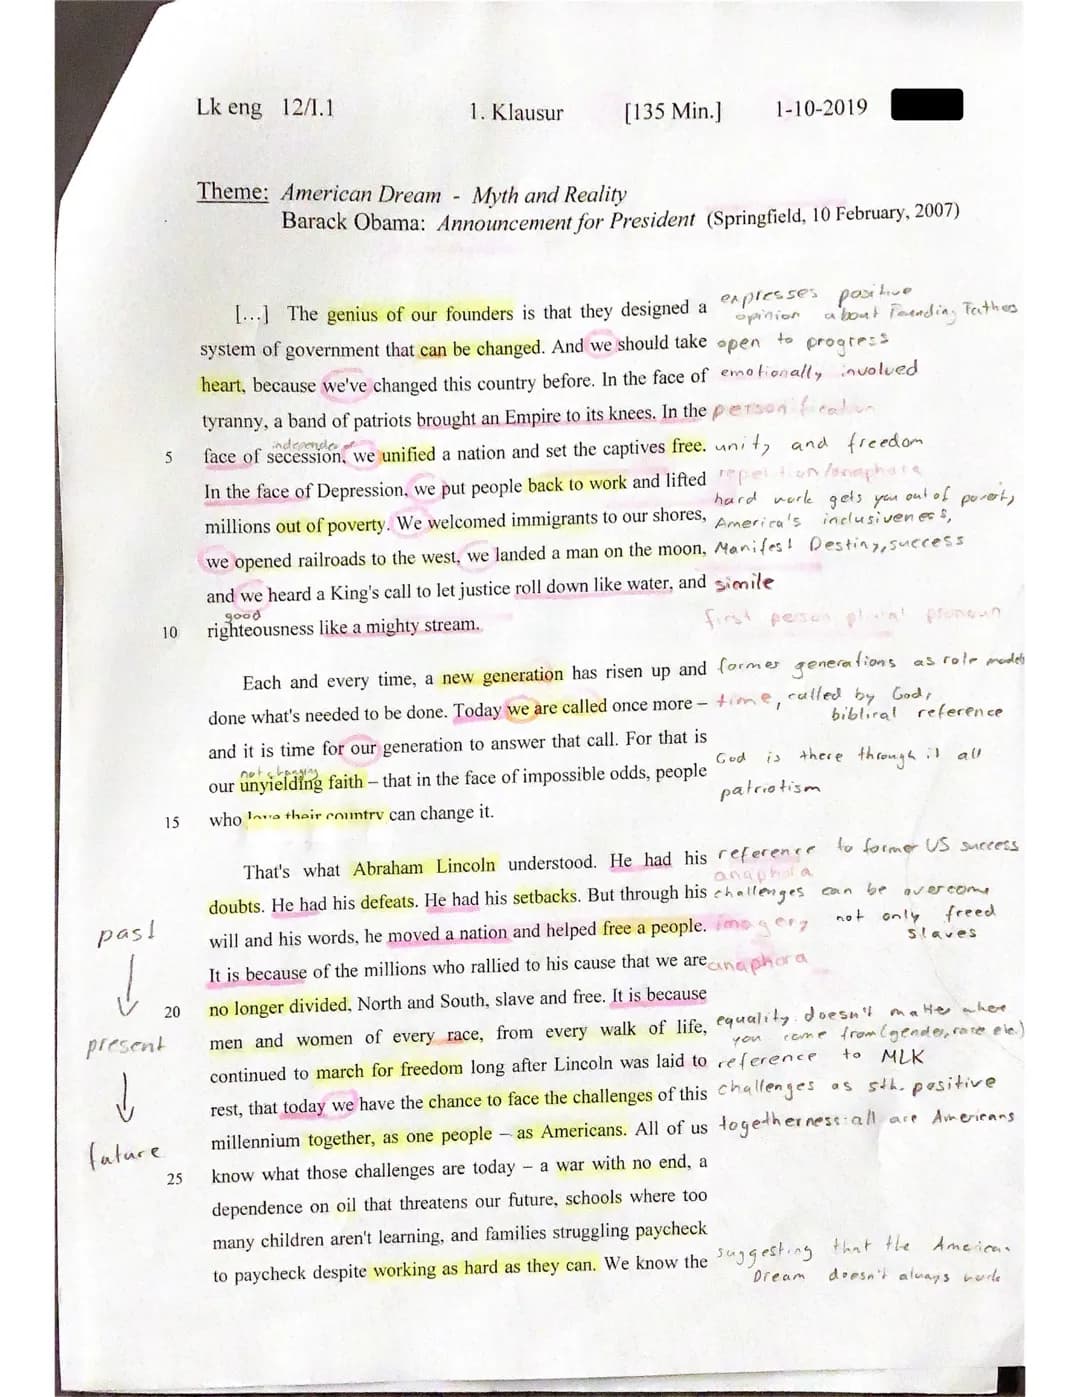 Lk eng 12/I.1 1. Klausur [135 Min.] 1-10-2019
Theme: American Dream - Myth and Reality
Barack Obama: Announcement for President (Springfield, 10 February, 2007)
[...] The genius of our founders is that they designed a expresses positive
opinion about Founding Fathers
system of government that can be changed. And we should take open to progress
heart, because we've changed this country before. In the face of emotionally involved
tyranny, a band of patriots brought an Empire to its knees. In the personification
5 face of secession, we unified a nation and set the captives free. unity and freedom
In the face of Depression, we put people back to work and lifted repetition/anaphora
hard work gets you out of poverty
millions out of poverty. We welcomed immigrants to our shores, America's inclusiveness,
we opened railroads to the west, we landed a man on the moon, Manifest Destiny, success
and we heard a King's call to let justice roll down like water, and simile
good
10 righteousness like a mighty stream. first person plural pronoun
Each and every time, a new generation has risen up and former generations as role models
done what's needed to be done. Today we are called once more – time, called by God,
biblical reference
and it is time for our generation to answer that call. For that is
God is there through it all
not changing
our unyielding faith – that in the face of impossible odds, people
patriotism
15 who love their country can change it.
That's what Abraham Lincoln understood. He had his reference to former US success
anaphora
doubts. He had his defeats. He had his setbacks. But through his challenges can be overcome
will and his words, he moved a nation and helped free a people. imagery not only freed
slaves
It is because of the millions who rallied to his cause that we are anaphora
20 no longer divided, North and South, slave and free. It is because
men and women of every race, from every walk of life, equality: doesn't matter where
you come from (gender, race etc.)
continued to march for freedom long after Lincoln was laid to reference to MLK
rest, that today we have the chance to face the challenges of this challenges as sth. positive
millennium together, as one people – as Americans. All of us togetherness: all are Americans
25 know what those challenges are today – a war with no end, a
dependence on oil that threatens our future, schools where too
many children aren't learning, and families struggling paycheck
to paycheck despite working as hard as they can. We know the suggesting that the American
Dream doesn't always work
past
present
future